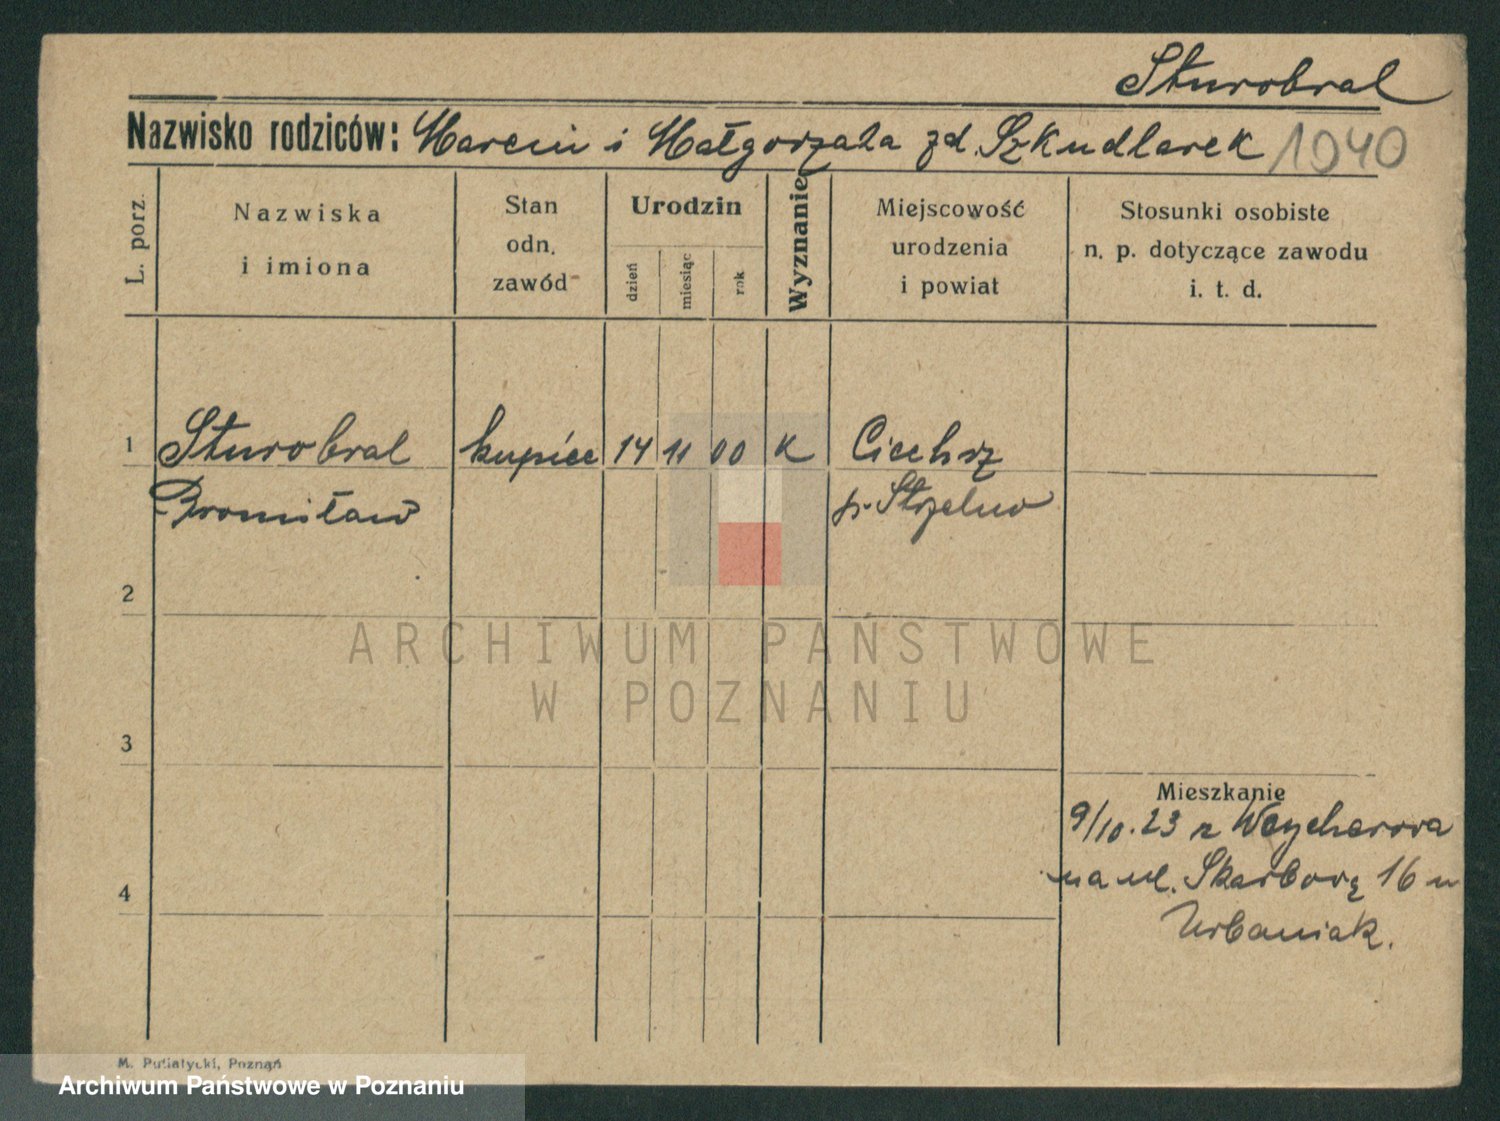 Sturobral
Nazwisko rodziców: Marcin i Małgorzata zd. Szkudlarek 1940
L. porz.
Nazwiska
i imiona
Stan
odn.
zawód
Urodzin
dzień
miesiąc
rok
Wyznanie
Miejscowość
urodzenia
i powiat
Stosunki osobiste
n. p. dotyczące zawodu
i. t. d.
1 Sturobral kupiec 14 11 00 K Ciechrz
Bronisław p. Strzelno
2
ARCHIWUM PAŃSTWOWE
W POZNANIU
3
Mieszkanie
9/10.23 z Wejcherowa
na ul. Skarbową 16 u
4
Urbaniak.
M. Putiatycki, Poznań
Archiwum Państwowe w Poznaniu